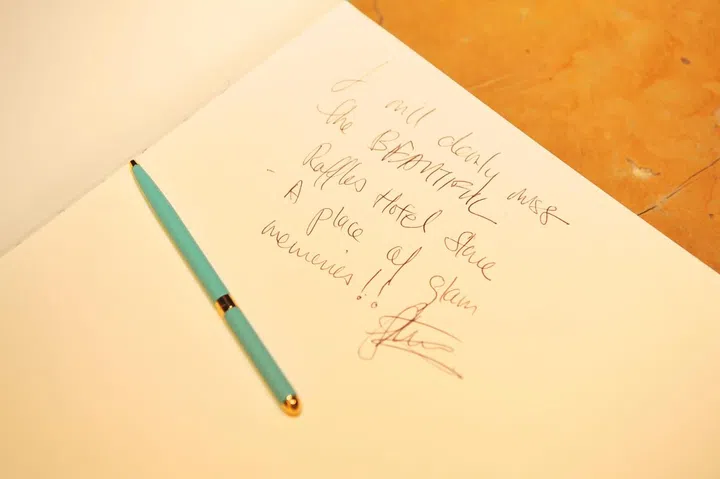 I will dearly miss
the BEAUTIFUL
Raffles Hotel Store
- A place of glam
memories!!